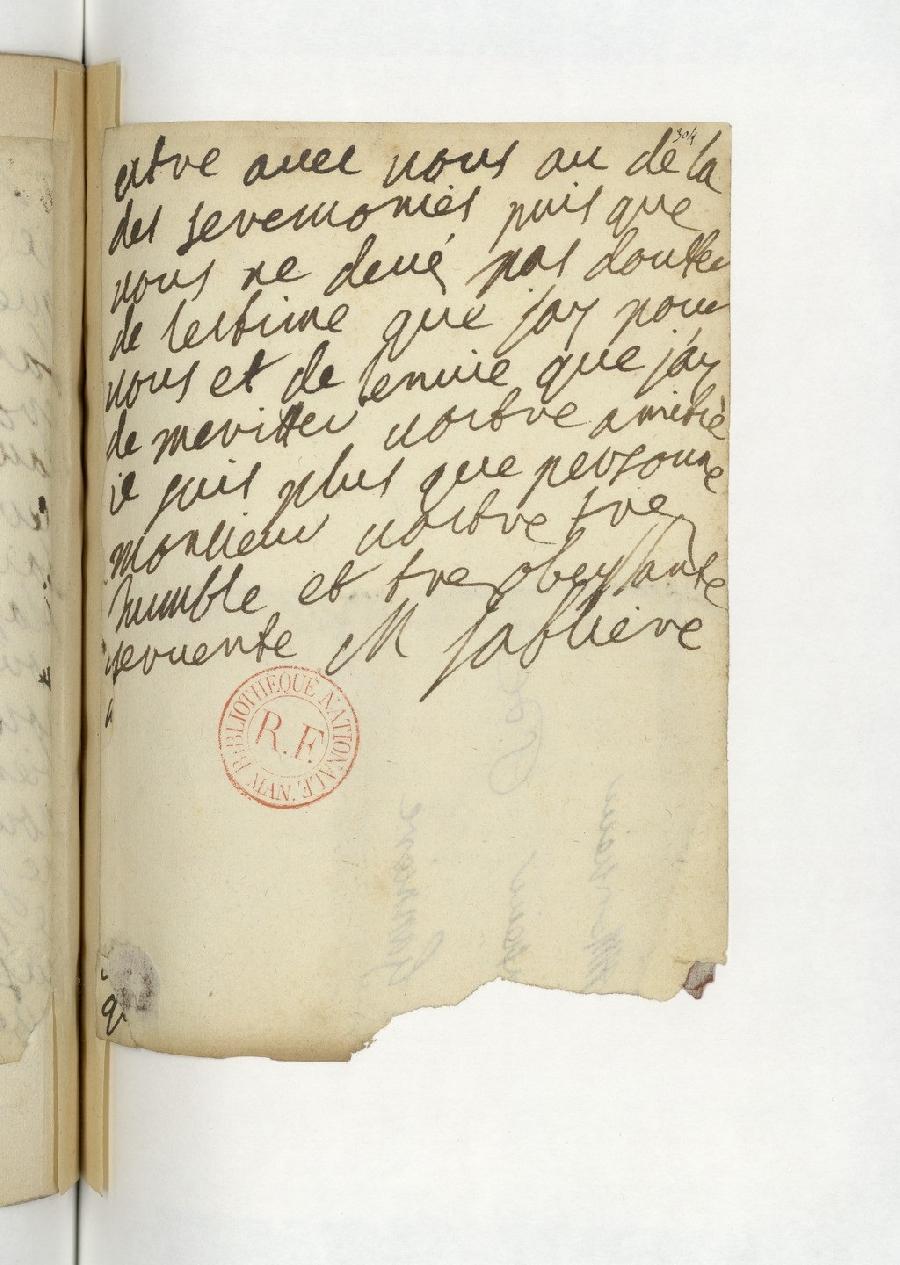 304
estre auec uous au dela
des seremonies puis que
uous ne deué pas doutter
de lestime que jay pour
uous et de lenuie que jay
de meritter uostre amitié
ie suis plus que personne
monsieur uostre tre
humble et tre obeyssante
seruente M Sabliere
BIBLIOTHEQUE NATIONALE MAN.
R.F.